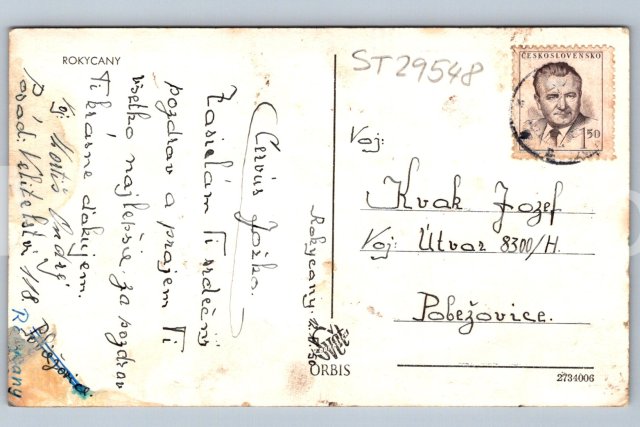 ROKYCANY
ST29548
ČESKOSLOVENSKO
1.50
Servus Jožko.
Zasielám Ti srdečný
pozdrav a prajem Ti
všetko najlepšie. za pozdrav
Ti krásne ďakujem.
Voj.
Ondrej
Velitelství 118
Rokycany
Rokycany.
Voj:
Kvak Jozef
Voj: Útvar 8300/H.
Pobežovice.
Svět
ORBIS
2734006